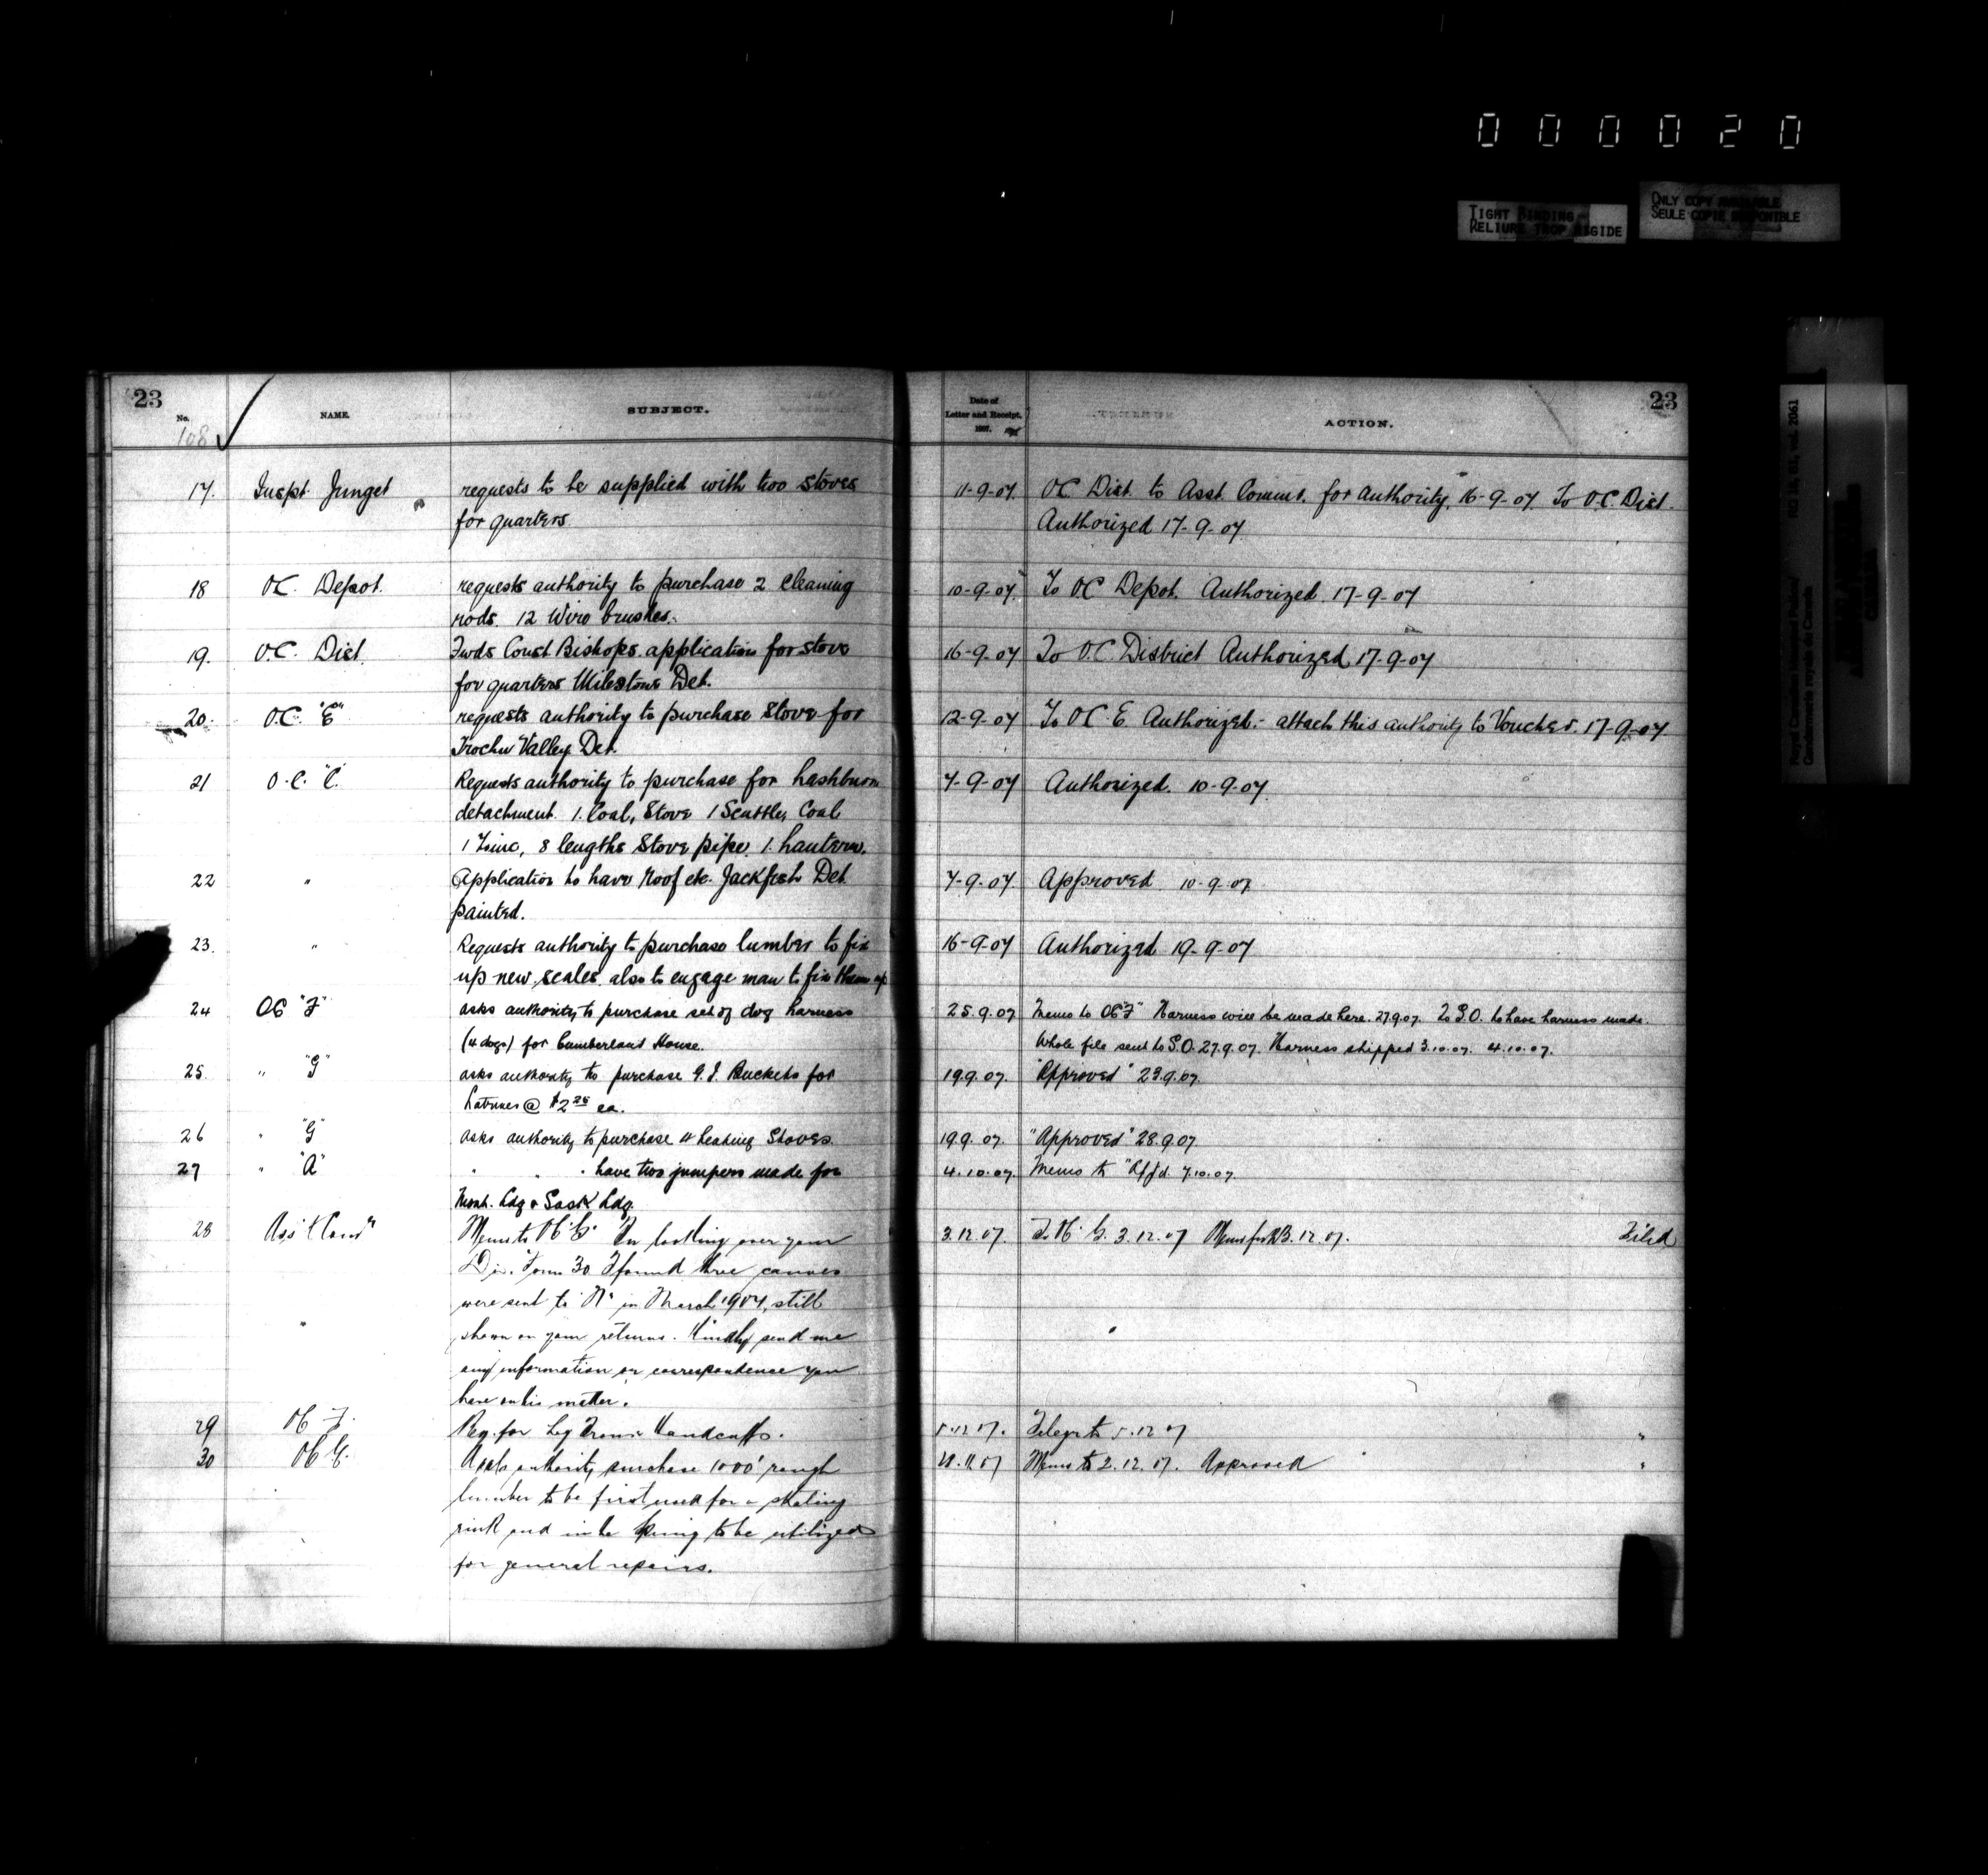 000020
TIGHT BINDING
RELIURE TROP RIGIDE
ONLY COPY AVAILABLE
SEULE COPIE DISPONIBLE
Royal Canadian Mounted Police/
Gendarmerie royale du Canada
RG 18, B1, vol. 2061
23
No. NAME. SUBJECT.
108
Date of Letter and Receipt, 1907. ACTION.
23
17. Inspt. Junget requests to be supplied with two stoves 11-9-07. OC Dist. to Asst. Commr. for authority. 16-9-07. To O.C. Dist.
for quarters Authorized 17-9-07
18 OC. Depot. requests authority to purchase 2 cleaning 10-9-07 To OC Depot. Authorized 17-9-07
rods. 12 Wire brushes.
19. O.C. Dist. Fwds Const. Bishops application for stove 16-9-07 To O.C. District Authorized 17-9-07
for quarters Milestone Det.
20. O.C. "E" requests authority to purchase Stove for 12-9-07 To OC. E. Authorized.- attach this authority to Voucher. 17-9-07.
Trochu Valley Det.
21 O.C. "C" Requests authority to purchase for Lashburn 7-9-07 Authorized. 10-9-07.
detachment. 1. Coal, Stove 1 Scuttle, Coal
1 Zinc, 8 lengths Stove pipe. 1. Lantern.
22 " Application to have Roof etc. Jackfish Det. 7-9-07. Approved 10-9-07
painted.
23. " Requests authority to purchase lumber to fix 16-9-07 Authorized 19-9-07
up new scales. also to engage man to fix them up
24 OC "F" asks authority to purchase set of dog harness 25.9.07 Memo to OC "F" Harness will be made here. 27.9.07. To S.O. to have harness made.
(4 dogs) for Cumberland House. Whole file sent to S.O. 27.9.07. Harness shipped 3.10.07. 4.10.07.
25. " "G" asks authority to purchase G.I. Buckets for 19.9.07. "Approved" 23.9.07.
Latrines @ $2.25 ea.
26 " "G" asks authority to purchase 4 heating Stoves. 19.9.07. "Approved" 28.9.07
27 " "A" " " " have two jumpers made for 4.10.07. Memo to "A" 7.10.07.
Mont. Ldg & Sask Ldg.
28 Ass't Com'r Memo to OC "G" On looking over your 3.12.07. To OC G. 3.12.07 Memo 12.07. Filed
Div. Form 30 I found three canoes
were sent to "N" in March 1907, still
" shown on your returns. Kindly send me
any information or correspondence you
have on this matter.
29 OC F. Req. for Leg Irons Handcuffs. 5.12.07. Telegr to 5.12.07 "
30 OC G. Asks authority purchase 1000' rough 28.11.07 Memo to 2.12.07. Approved "
lumber to be first used for a skating
rink and in the Spring to be utilized
for general repairs.